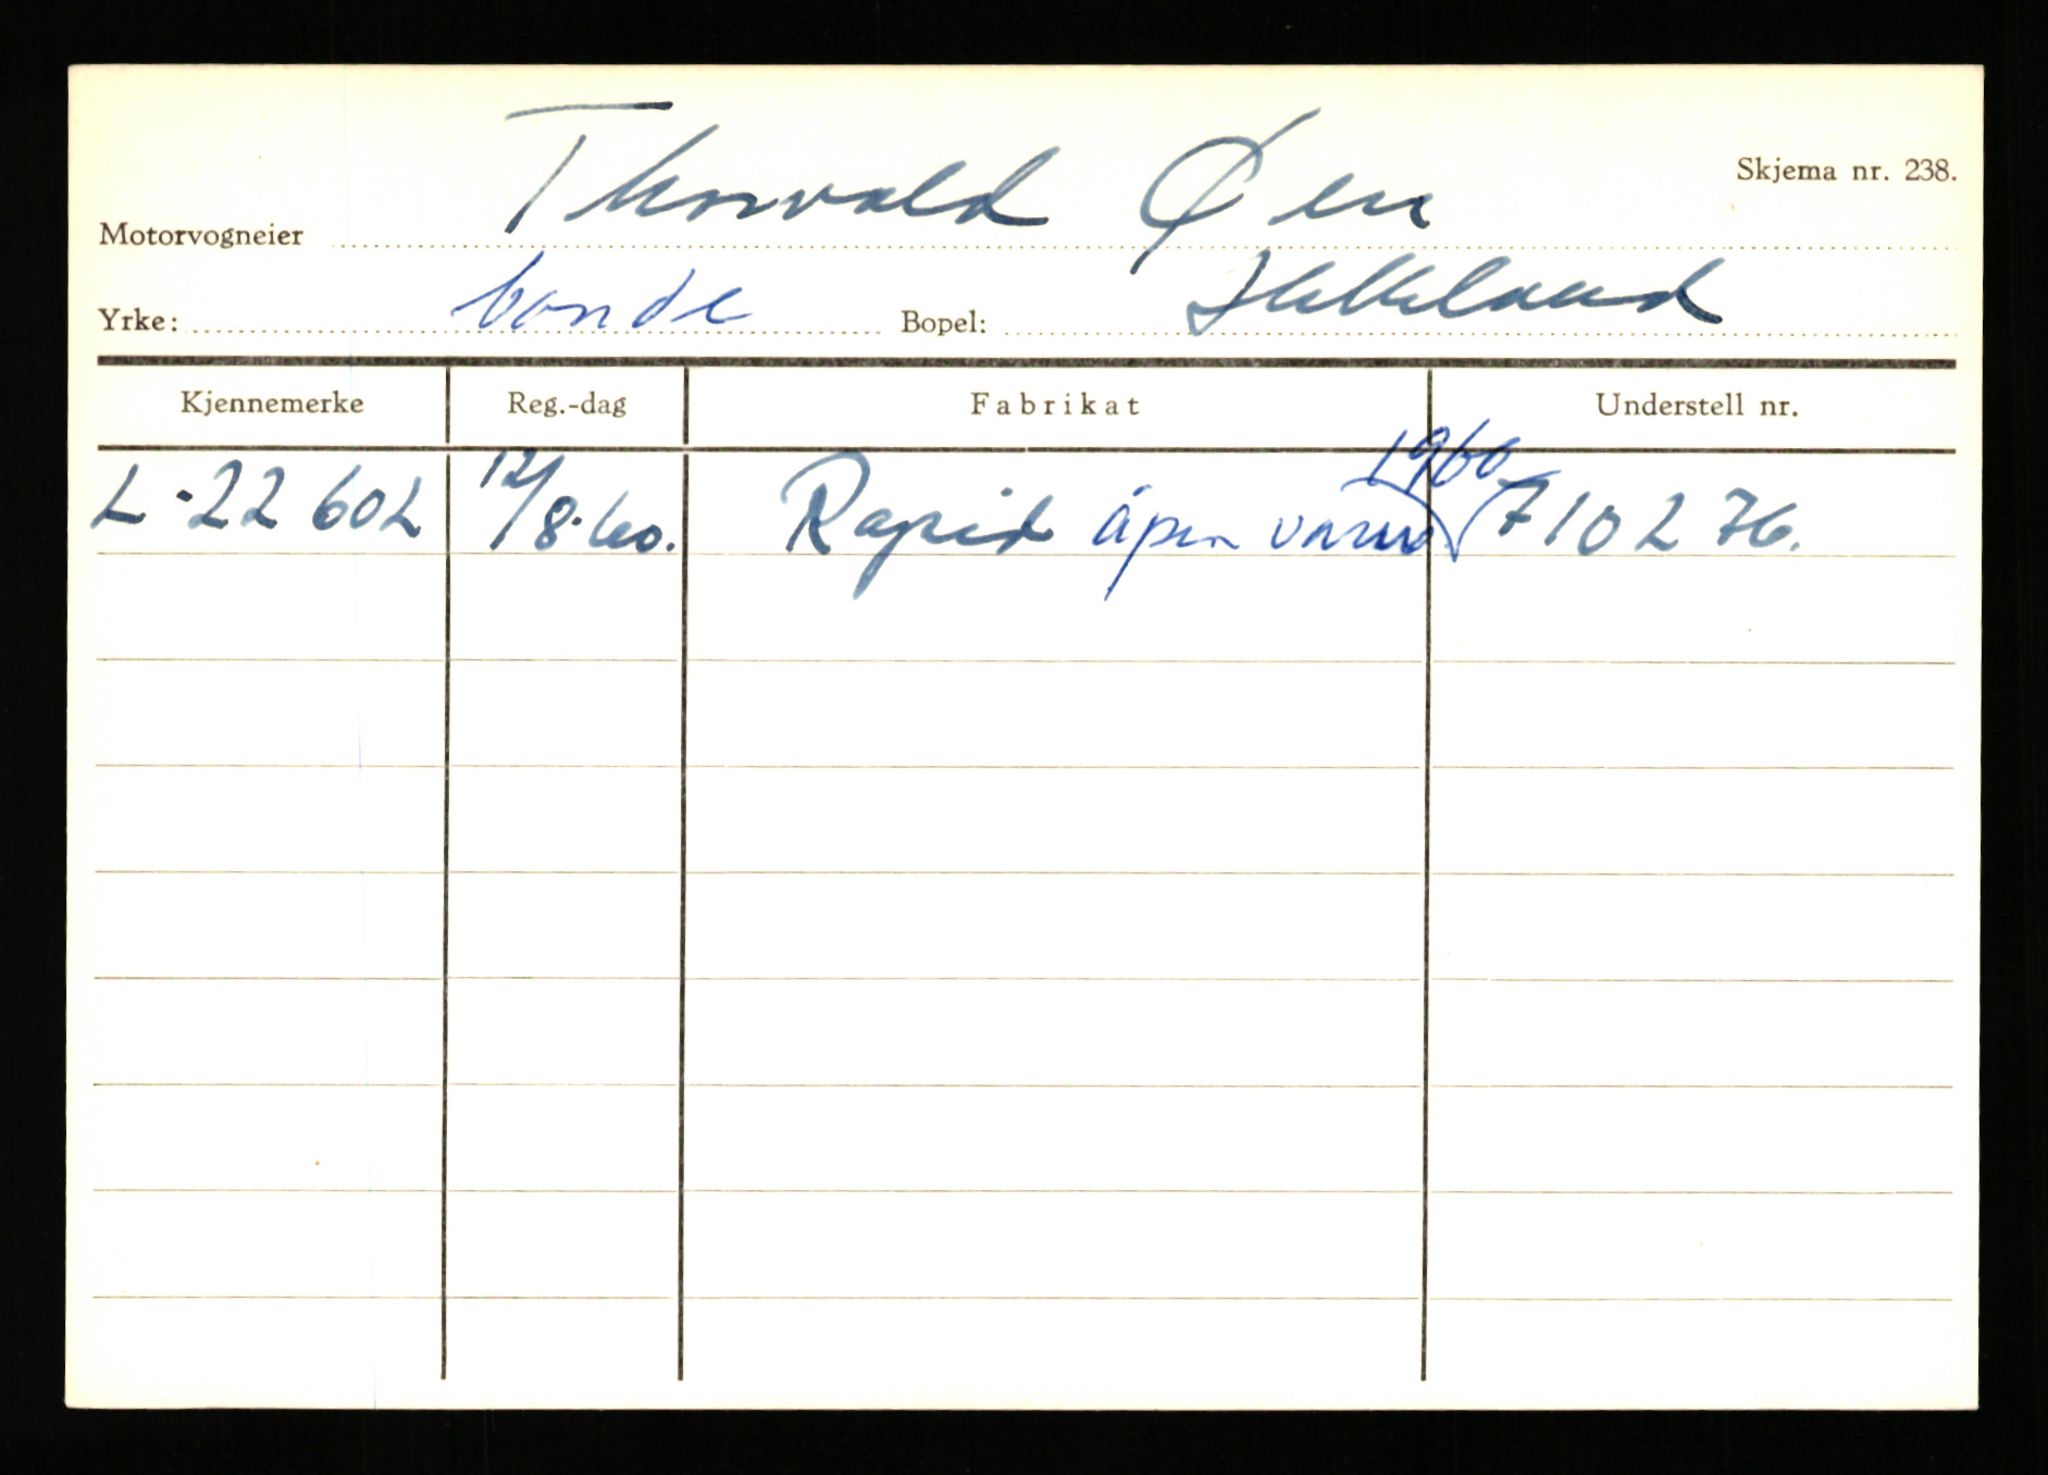 Skjema nr. 238.
Motorvogneier Thorvald Øen
Yrke: bonde Bopel: Helleland
Kjennemerke Reg.-dag Fabrikat Understell nr.
1960
L-22602 12/8.60. Rapid åpen varev 710276.